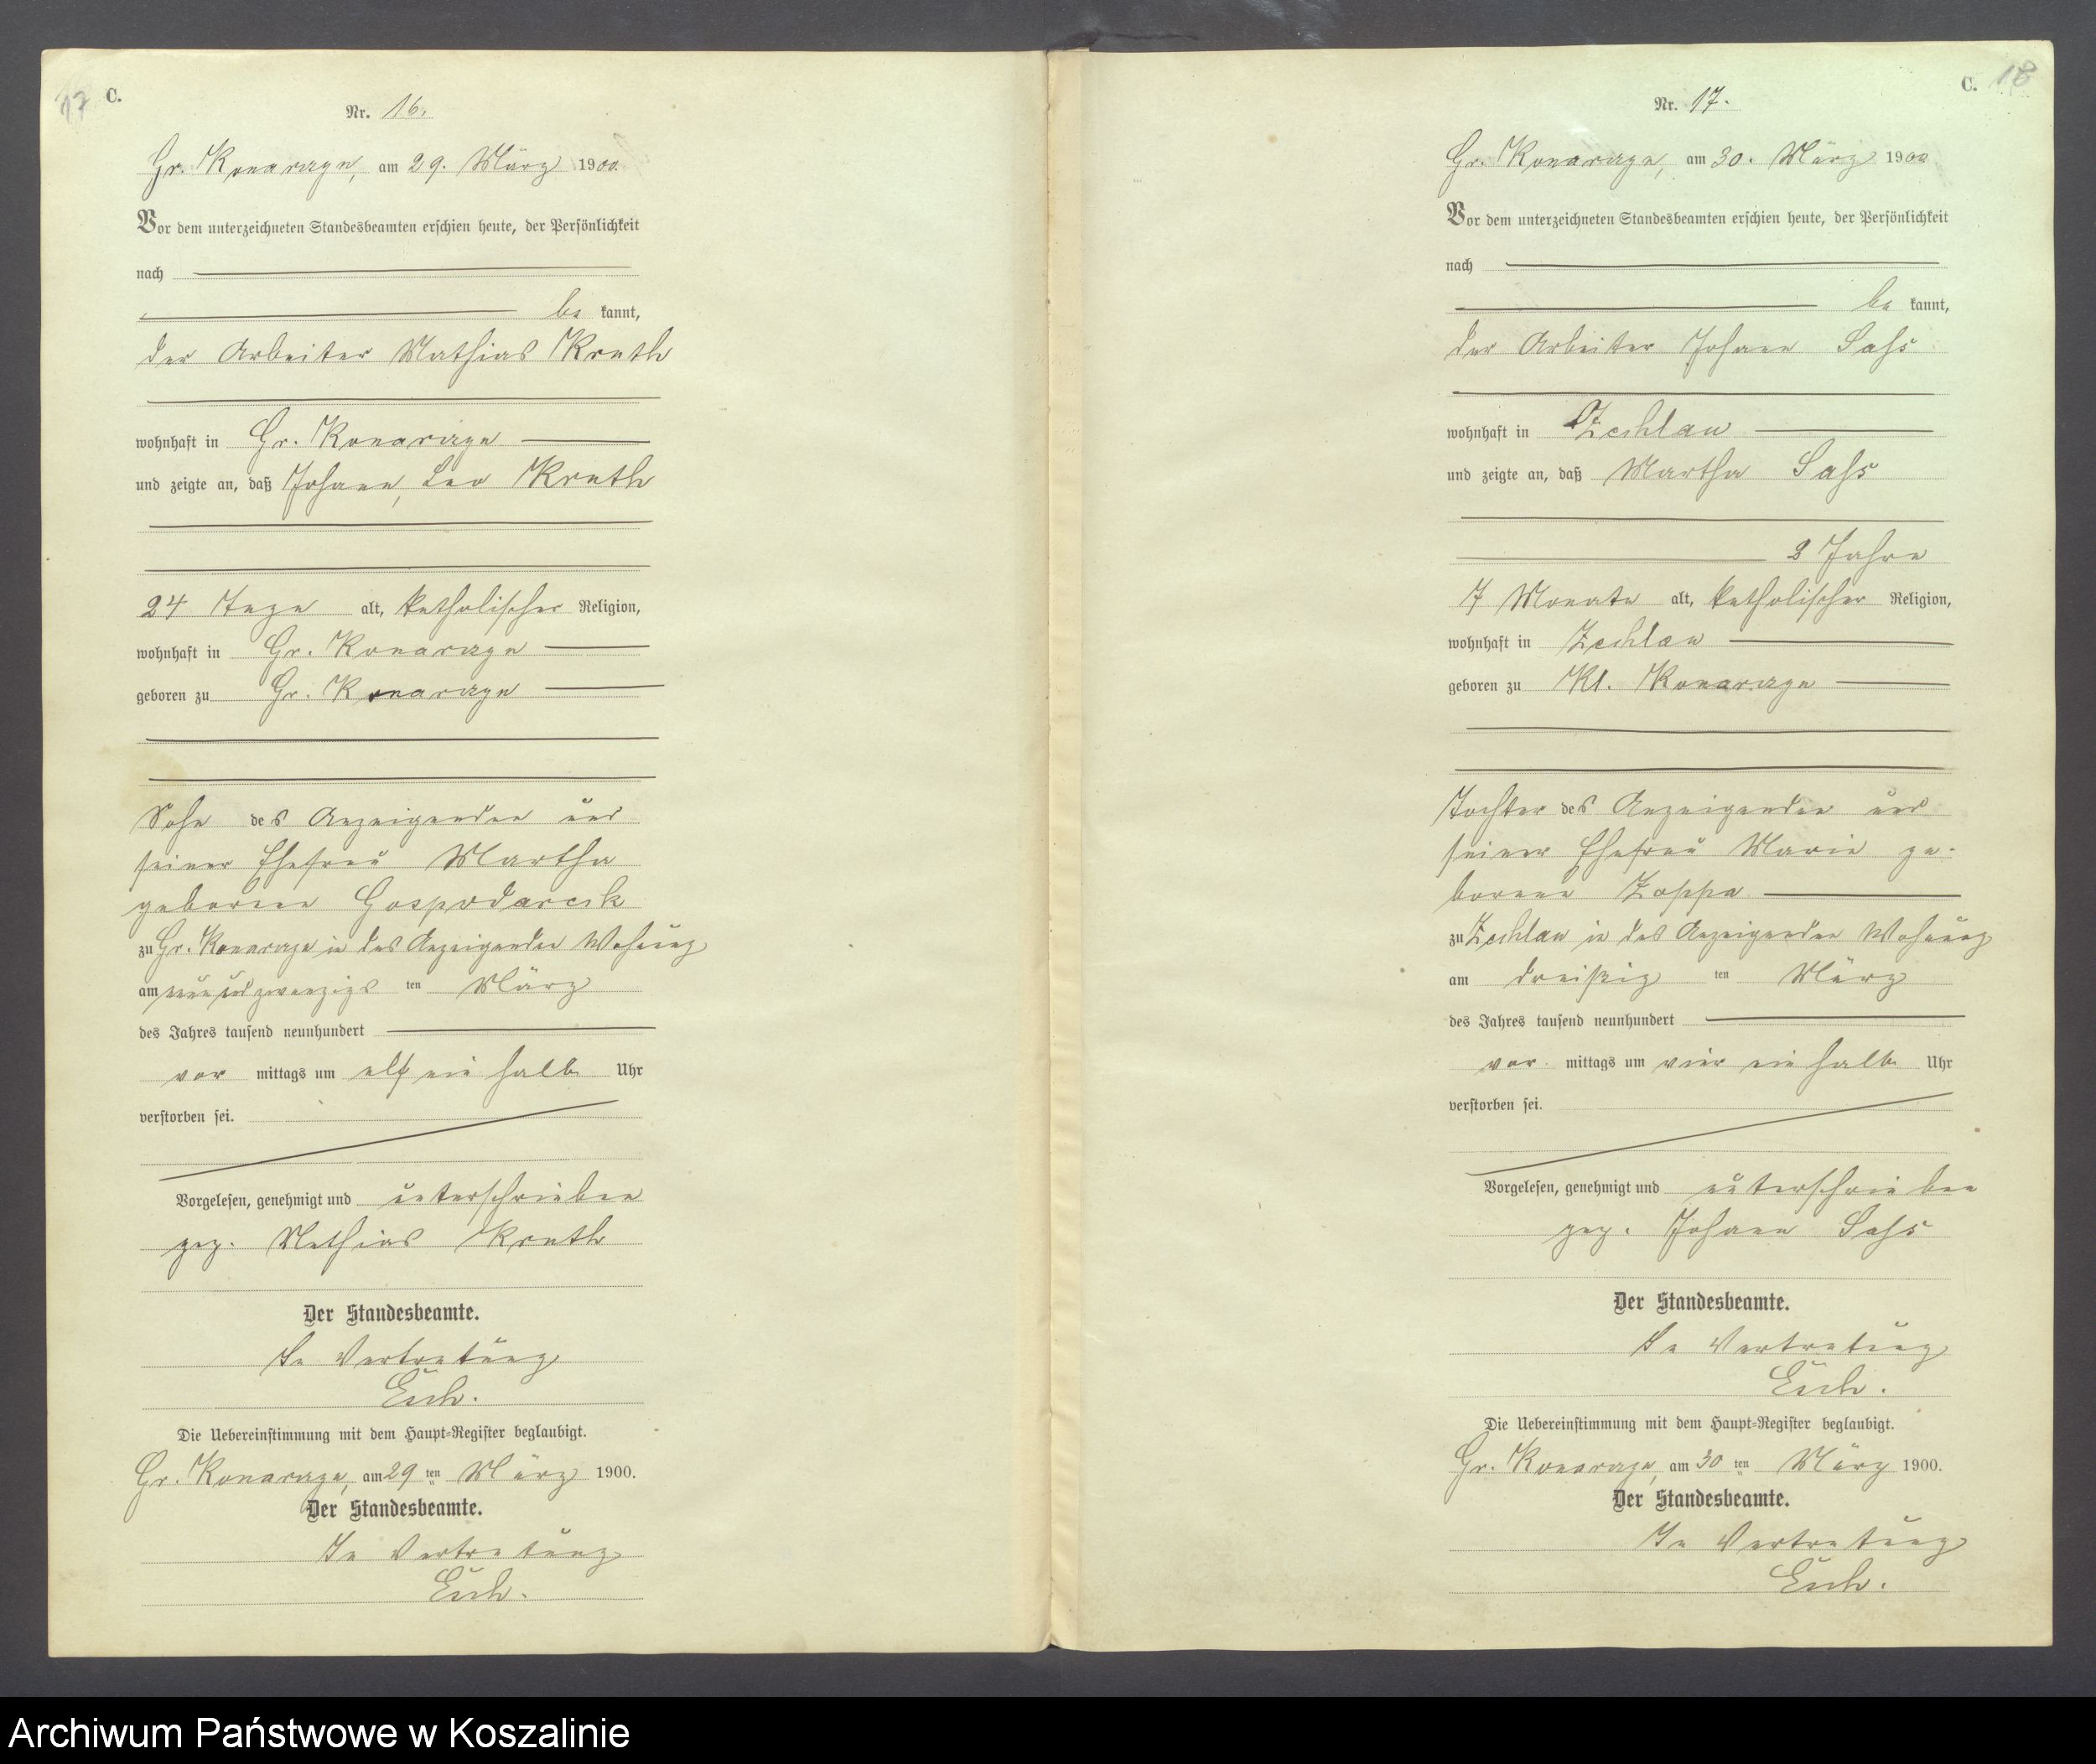 17 C.
Nr. 16.
Gr. Konarzyn, am 29. März 1900.
Vor dem unterzeichneten Standesbeamten erschien heute, der Persönlichkeit
nach
be kannt,
der Arbeiter Mathias Knuth
wohnhaft in Gr. Konarzyn
und zeigte an, daß Johann, Leo Knuth
24 Tage alt, katholischer Religion,
wohnhaft in Gr. Konarzyn
geboren zu Gr. Konarzyn
Sohn des Anzeigenden und
seiner Ehefrau Martha
geborene Gospodarcik
zu Gr. Konarzyn in des Anzeigenden Wohnung
am neunundzwanzigs ten März
des Jahres tausend neunhundert
vor mittags um elf ein halb Uhr
verstorben sei.
Vorgelesen, genehmigt und unterschrieben
gez. Mathias Knuth
Der Standesbeamte.
In Vertretung
Die Uebereinstimmung mit dem Haupt-Register beglaubigt.
Gr. Konarzyn, am 29 ten März 1900.
Der Standesbeamte.
In Vertretung
C. 18
Nr. 17.
Gr. Konarzyn, am 30. März 1900
Vor dem unterzeichneten Standesbeamten erschien heute, der Persönlichkeit
nach
be kannt,
der Arbeiter Johann Sass
wohnhaft in Zechlau
und zeigte an, daß Martha Sass
2 Jahre
7 Monate alt, katholischer Religion,
wohnhaft in Zechlau
geboren zu Kl. Konarzyn
Tochter des Anzeigenden und
seiner Ehefrau Marie ge-
borene Zoppa
zu Zechlau in des Anzeigenden Wohnung
am dreißig ten März
des Jahres tausend neunhundert
vor mittags um vier ein halb Uhr
verstorben sei.
Vorgelesen, genehmigt und unterschrieben
gez. Johann Sass
Der Standesbeamte.
In Vertretung
Die Uebereinstimmung mit dem Haupt-Register beglaubigt.
Gr. Konarzyn, am 30 ten März 1900.
Der Standesbeamte.
In Vertretung
Archiwum Państwowe w Koszalinie